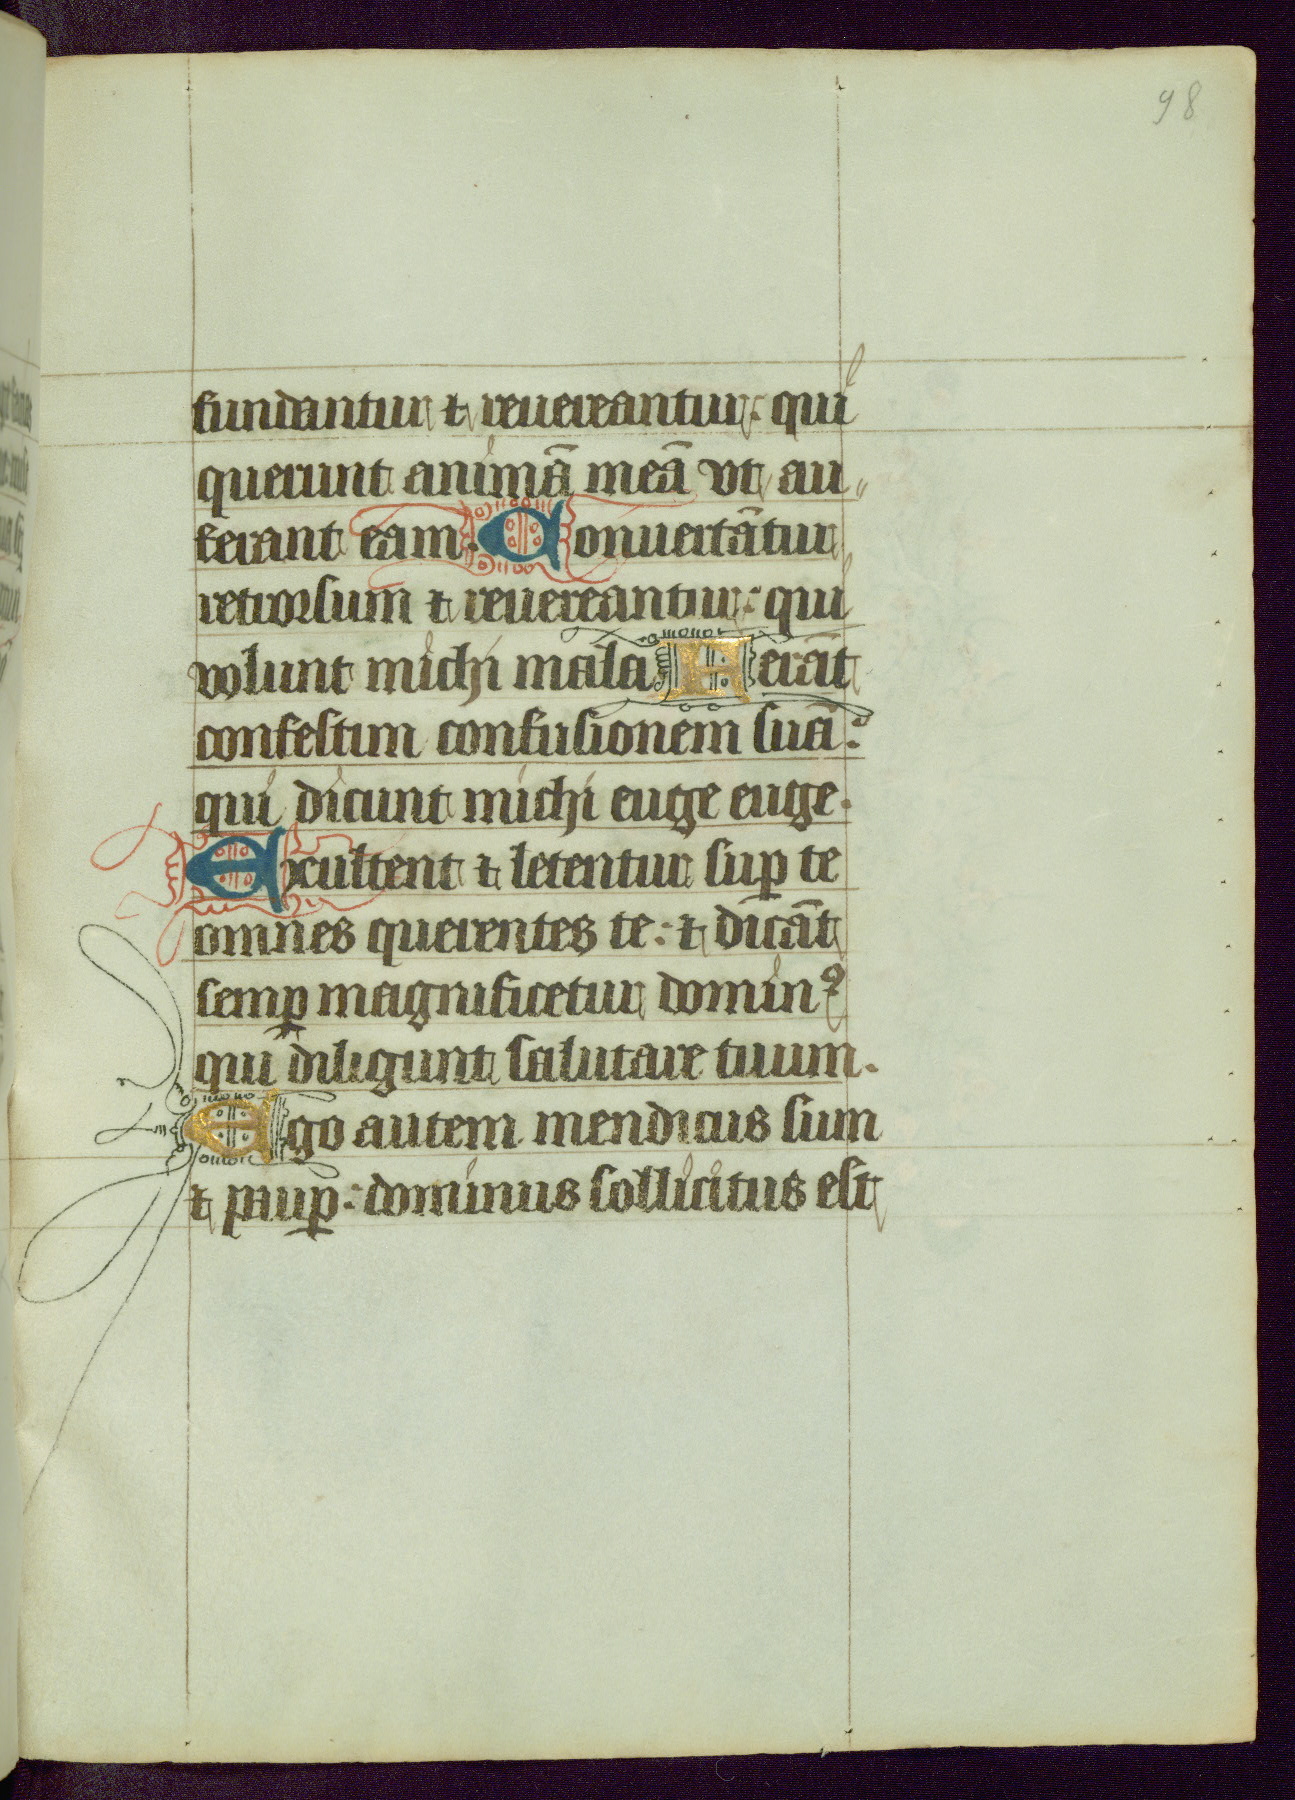 98
fundantur ⁊ reuereantur: qui
querunt animā meā vt au〃
ferant eam. Conuertātur
retrorsum ⁊ reuereantur: qui
volunt michi mala Ferāt
confestim confusionem suā:
qui dicunt michi euge euge.
Exultent ⁊ letentur suꝑ te
omnes querentes te: ⁊ dicāt
semꝑ magnificetur dominꝰ
qui diligunt salutare tuum.
Ego autem mendicus sum
⁊ pauꝑ: dominus sollicitus est